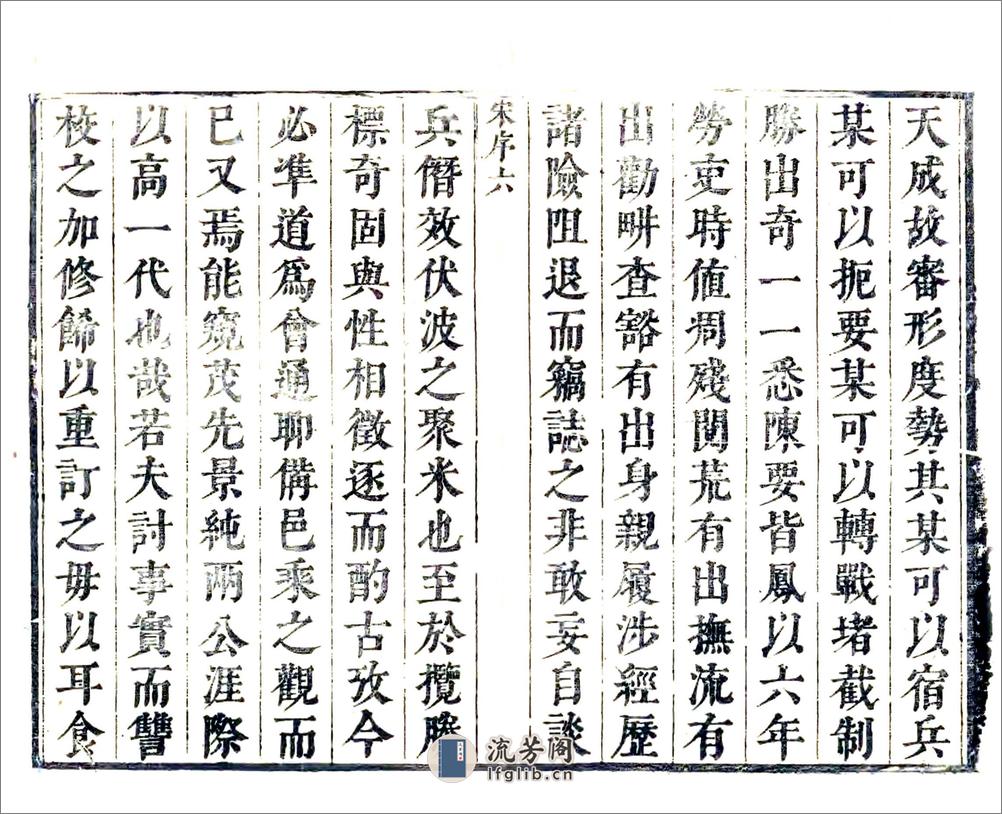 天成故審形度勢其某可以宿兵
某可以扼要某可以轉戰堵截制
勝出奇一一悉陳要皆鳳以六年
勞吏時值凋殘閴荒有出撫流有
出勸畊查豁有出身親履涉經歷
諸險阻退而竊誌之非敢妄自談
宋序六
兵僭效伏波之聚米也至於攬勝
標奇固與性相徵逐而酌古攷今
必準道爲會通聊備邑乘之觀而
已又焉能窺茂先景純兩公涯際
以高一代也哉若夫討事實而讐
校之加修飾以重訂之毋以耳食
流芳阁
lfglib.cn